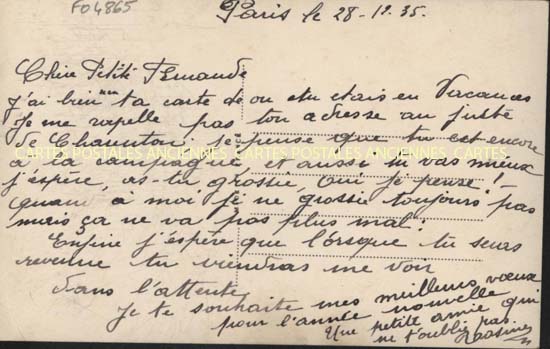 FO4865
Paris le 28-12-35.
Chère Petite Fernande
J'ai bien reçu ta carte de ou etu etais en Vacances
Je me rapelle pas ton adresse au juste
de je pense que tu est encore
CARTES POSTALES ANCIENNES CARTES POSTALES ANCIENNES
a la campagne et aussi tu vas mieux
j'espère, as-tu grossie, oui je pense!
quand à moi je ne grossie toujours pas
mais ça ne va pas plus mal!
Enfine j'espère que lorsque tu seras
revenue tu viendras me voir
dans l'attente
Je te souhaite mes meilleurs vœux
pour l'année nouvelle
Une petite amie qui
ne t'oublie pas.